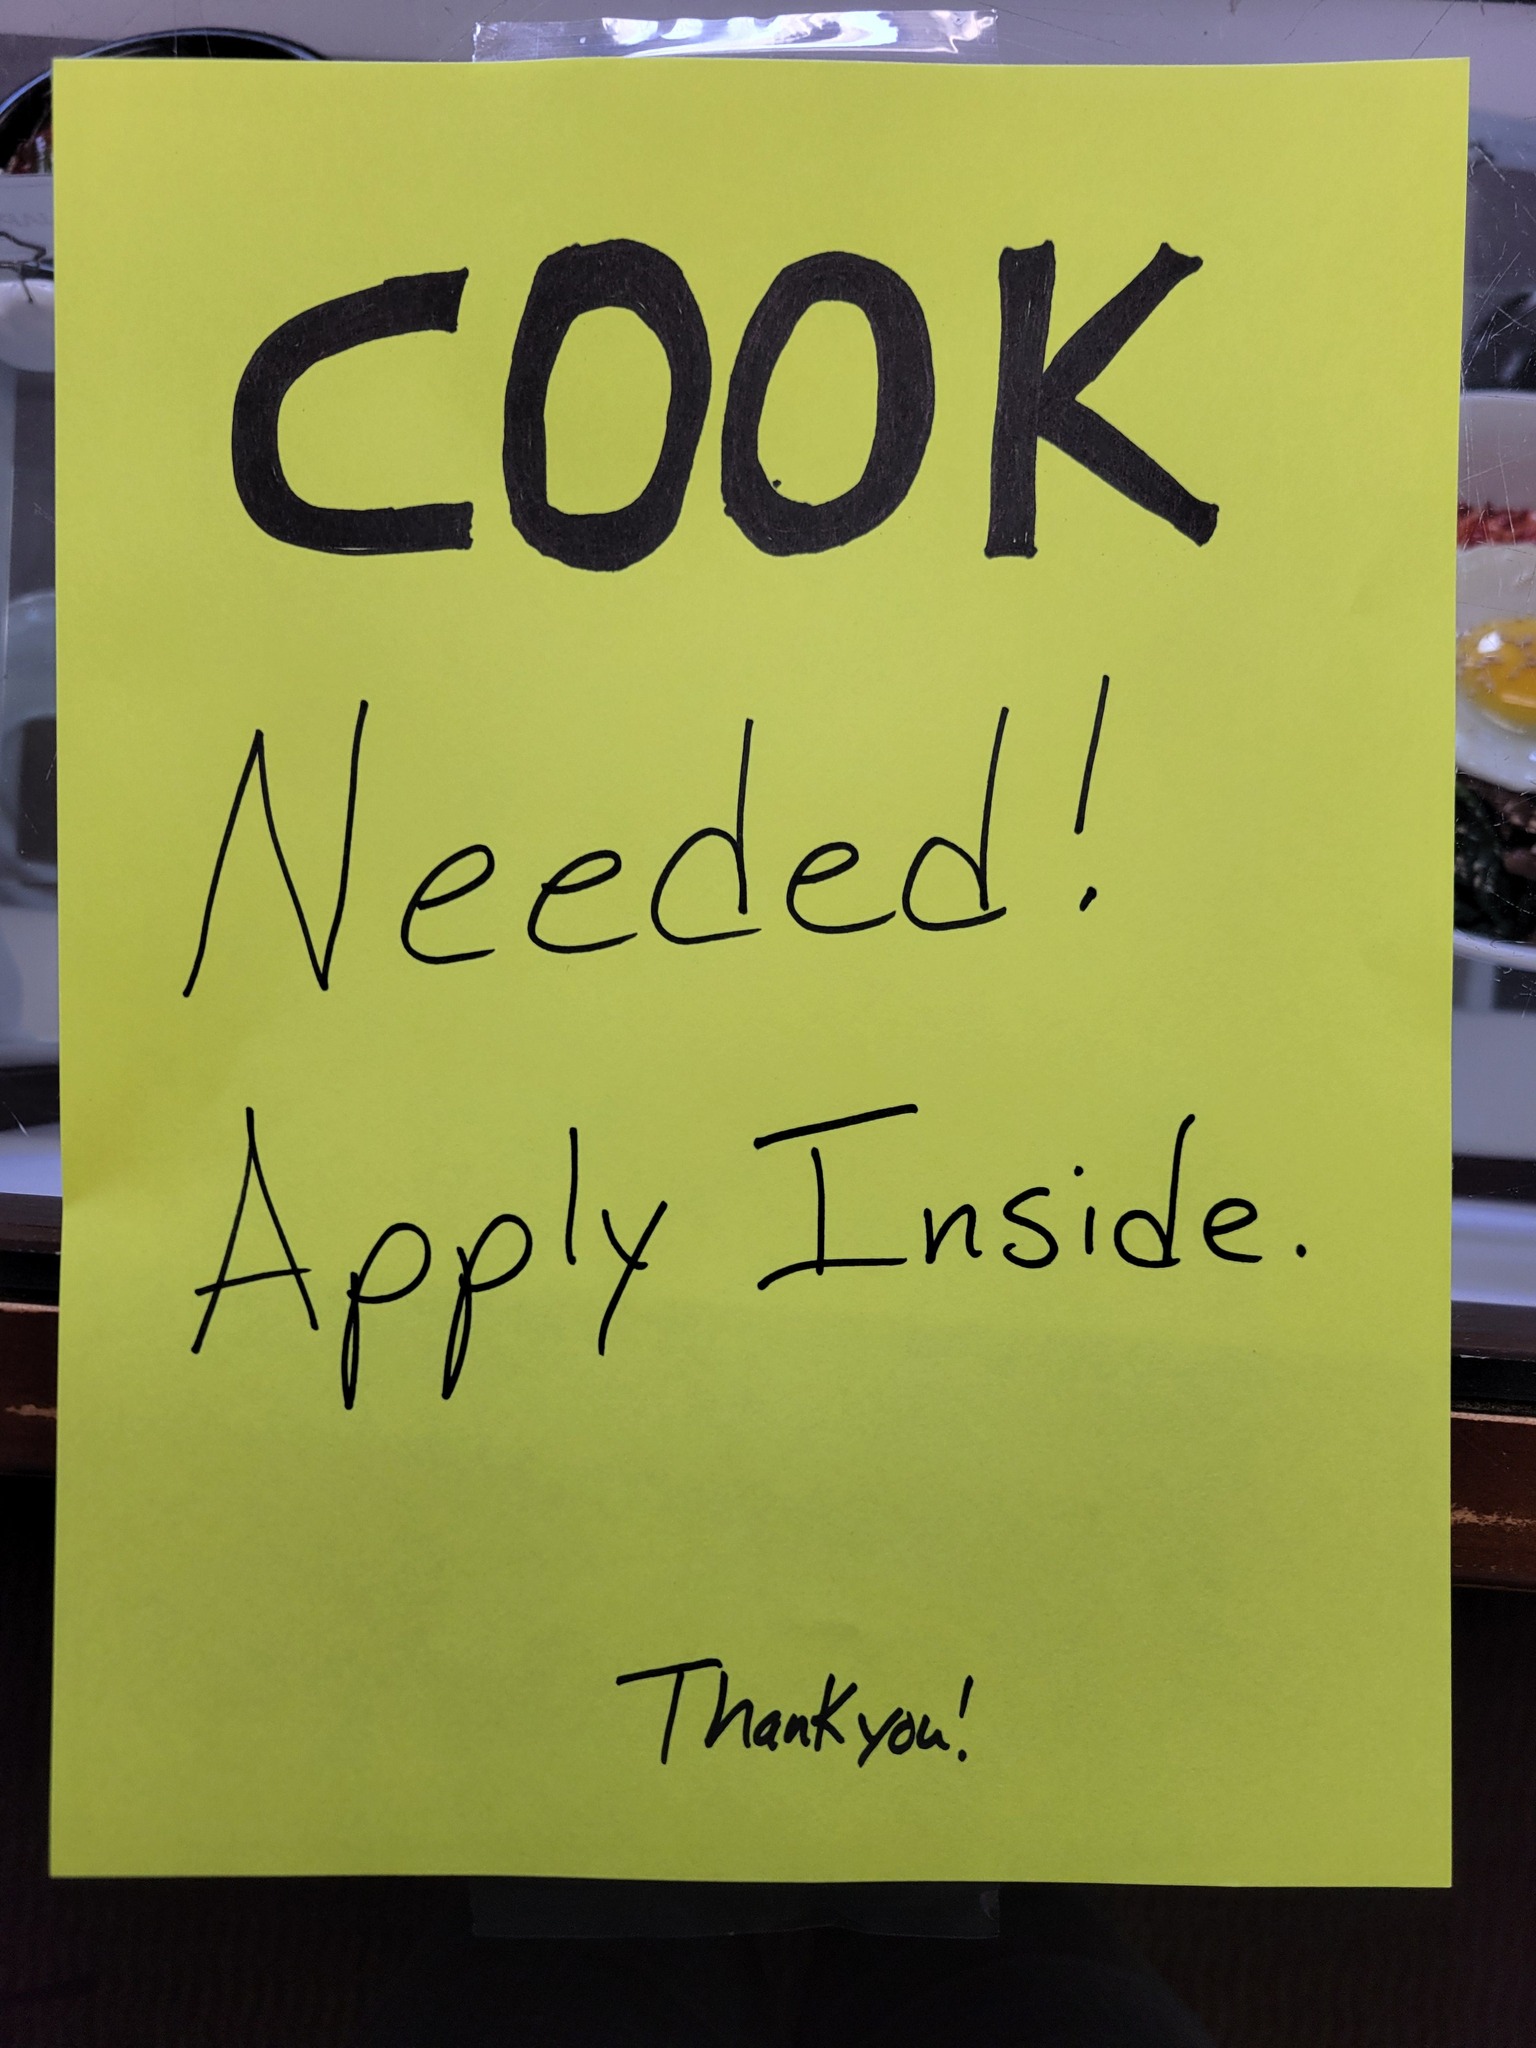 COOK
Needed!
Apply Inside.
Thank you!